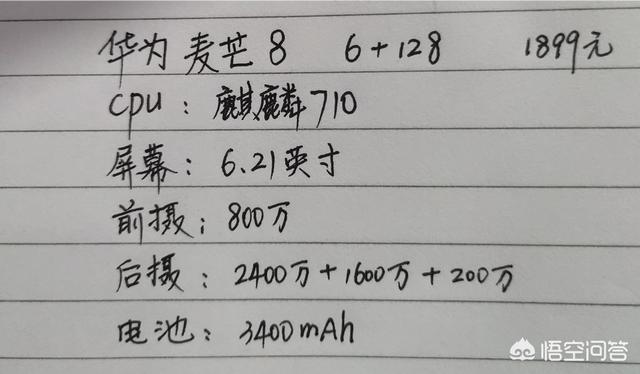 华为 麦芒 8 6+128 1899元
CPU：麒麟710
屏幕：6.21英寸
前摄：800万
后摄：2400万+1600万+200万
电池：3400mAh
悟空问答